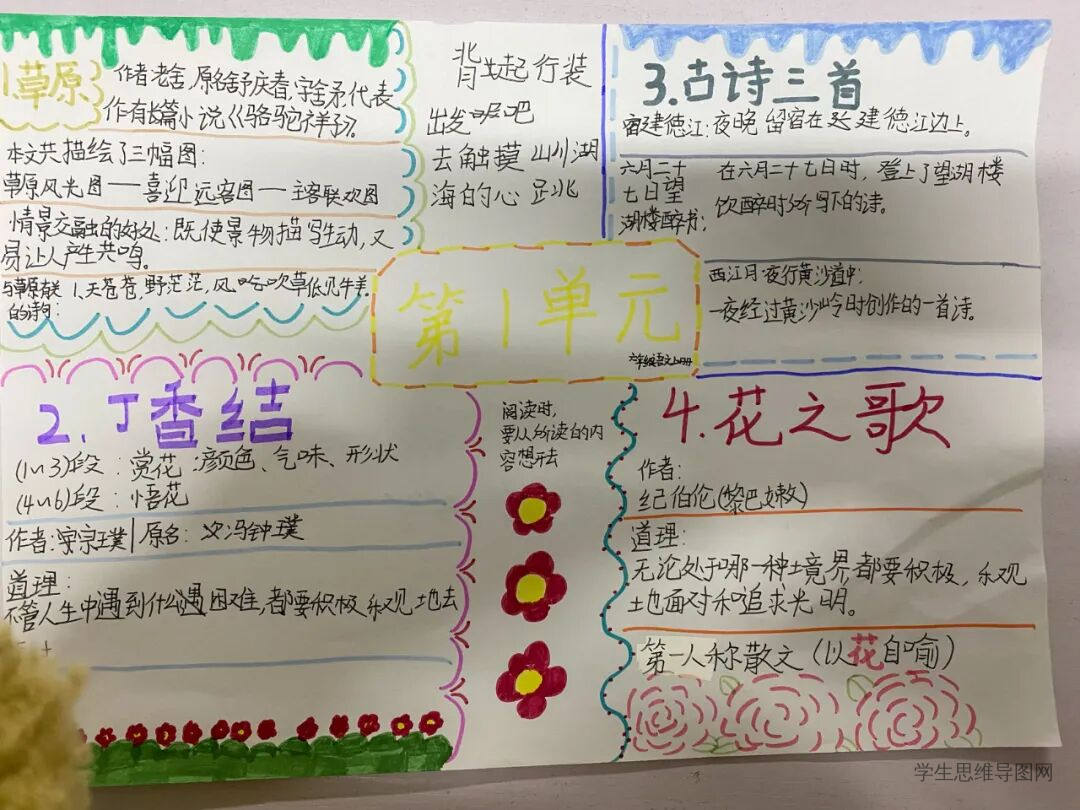 1.草原
作者:老舍,原名舒庆春,字舍予,代表
作有长篇小说《骆驼祥子》。
本文共描绘了三幅图:
草原风光图——喜迎远客图——主客联欢图
情景交融的好处:既使景物描写生动,又
易让人产生共鸣。
与草原有关 1.天苍苍,野茫茫,风吃吹草低见牛羊。
的诗句:
背起行装
出发吧
去触摸山川湖
海的心跳
3.古诗三首
宿建德江:夜晚留宿在建德江边上。
六月二十
七日望
湖楼醉书:
在六月二十七日时,登上了望湖楼
饮醉时所写下的诗。
西江月·夜行黄沙道中:
一夜经过黄沙岭时创作的一首诗。
第1单元
六年级语文上册
2.丁香结
(1~3)段:赏花:颜色、气味、形状
(4~6)段:悟花
作者:宗璞|原名:冯钟璞
道理:
不管人生中遇到什么遇困难,都要积极乐观地去
阅读时,
要从所读的内
容想开去
4.花之歌
作者:
纪伯伦(黎巴嫩)
道理:
无论处于哪一种境界,都要积极,乐观
地面对和追求光明。
第一人称散文(以花自喻)
学生思维导图网